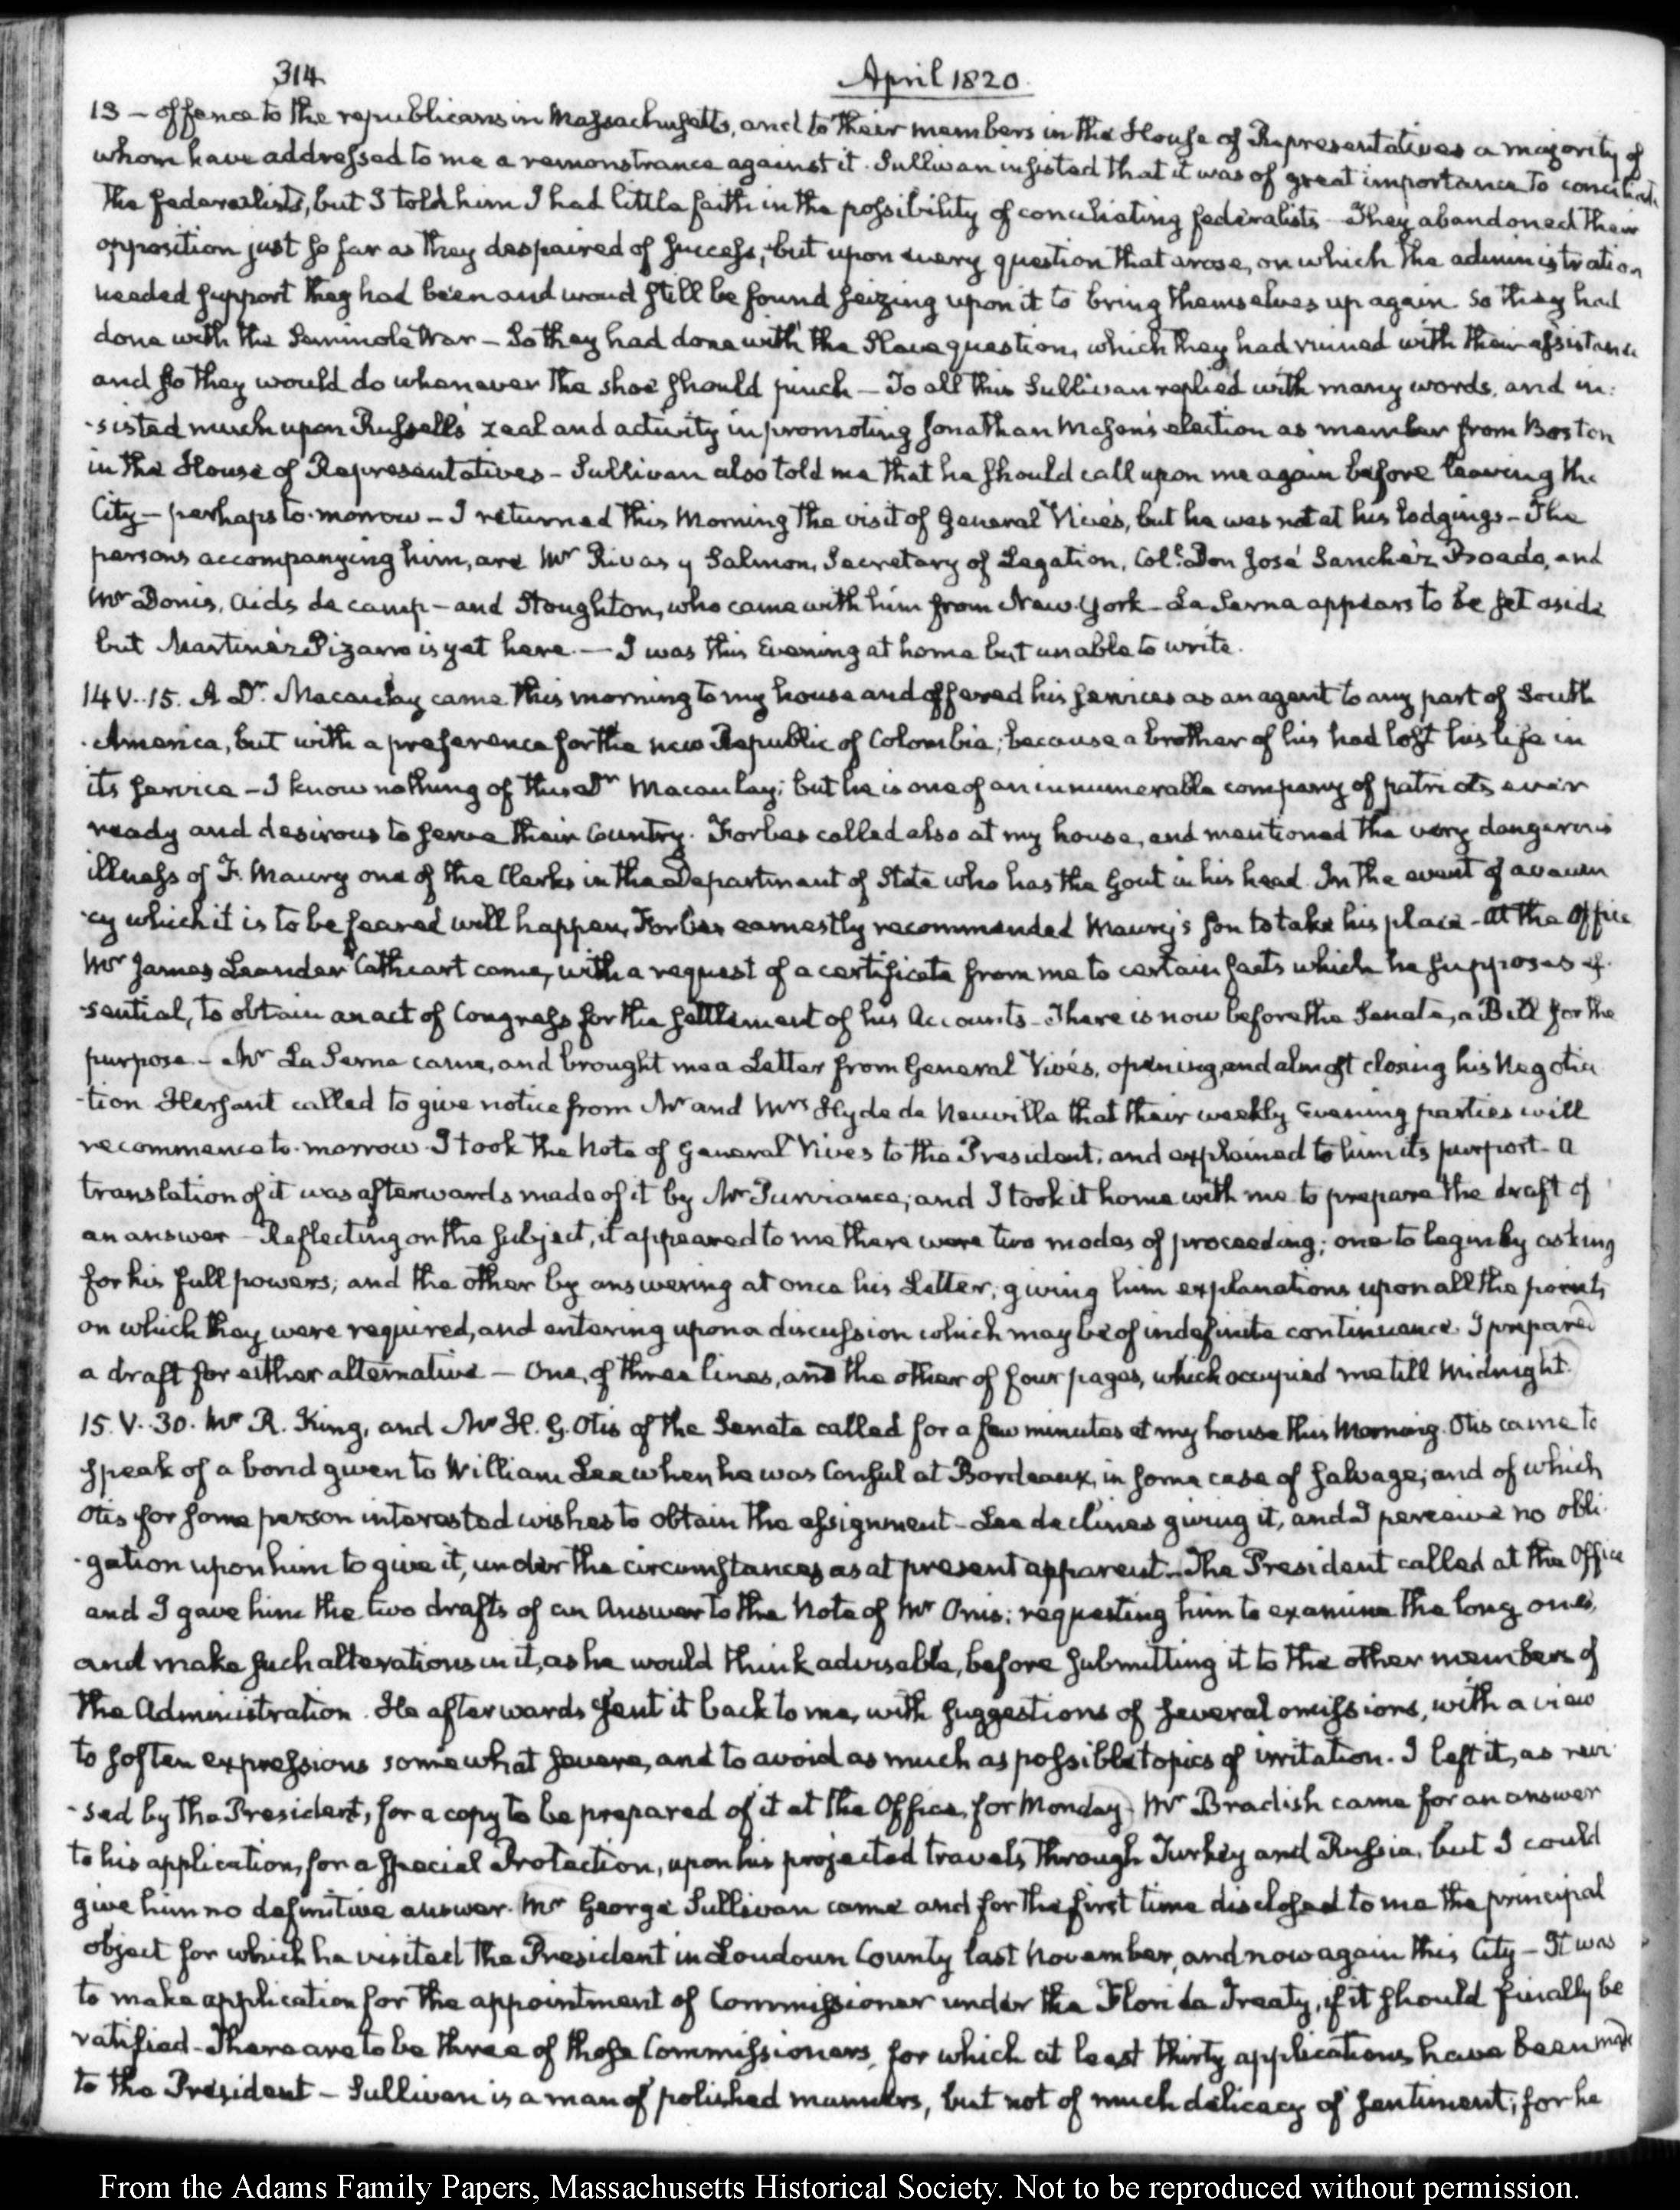 314
April 1820.
13 - offence to the republicans in Massachusetts, and to their members in the House of Representatives a majority of
whom have addressed to me a remonstrance against it. Sullivan insisted that it was of great importance to conciliate
the federalists, but I told him I had little faith in the possibility of conciliating federalists - They abandoned their
opposition just so far as they despaired of success; but upon every question that arose, on which the administration
needed support they had been and would still be found seizing upon it to bring themselves up again. So they had
done with the Seminole War - So they had done with the Slave question, which they had ruined with their assistance
and so they would do whenever the shoe should pinch - To all this Sullivan replied with many words, and in-
-sisted much upon Russell's zeal and activity in promoting Jonathan Mason's election as member from Boston
in the House of Representatives - Sullivan also told me that he should call upon me again before leaving the
City - perhaps to-morrow - I returned this Morning the visit of General Vivés, but he was not at his lodgings - The
persons accompanying him, are Mr Rivas y Salmon, Secretary of Legation, Col. Don José Sanchéz Boado, and
Mr Donis, Aids de camp - and Stoughton, who came with him from New-York - La Serna appears to be set aside
but Martinéz Pizarro is yet here. - I was this Evening at home but unable to write.
14 V. 15. A Dr Macaulay came this morning to my house and offered his services as an agent to any part of South
America, but with a preference for the new Republic of Colombia; because a brother of his had lost his life in
its service - I know nothing of this Dr Macaulay; but he is one of an innumerable company of patriots ever
ready and desirous to serve their Country. Forbes called also at my house, and mentioned the very dangerous
illness of F. Maury one of the Clerks in the Department of State who has the Gout in his head. In the event of a vacan
-cy which it is to be feared will happen, Forbes earnestly recommended Maury's son to take his place - At the Office
Mr James Leander Cathcart came, with a request of a certificate from me to certain facts which he supposes es-
-sential, to obtain an act of Congress for the settlement of his Accounts - There is now before the Senate, a Bill for the
purpose - Mr La Serna came, and brought me a Letter from General Vivés, opening, and almost closing his Negotia
-tion. Hersant called to give notice from Mr and Mrs Hyde de Neuville that their weekly Evening parties will
recommence to-morrow. I took the Note of General Vives to the President, and explained to him its purport - A
translation of it was afterwards made of it by Mr Purviance; and I took it home with me to prepare the draft of
an answer - Reflecting on the subject, it appeared to me there were two modes of proceeding; one to begin by asking
for his full powers; and the other by answering at once his Letter; giving him explanations upon all the points
on which they were required, and entering upon a discussion which may be of indefinite continuance. I prepared
a draft for either alternative - One, of three lines, and the other of four pages, which occupied me till Midnight.
15. V. 30. Mr R. King, and Mr H. G. Otis of the Senate called for a few minutes at my house this Morning. Otis came to
speak of a bond given to William Lee when he was Consul at Bordeaux, in some case of salvage; and of which
Otis for some person interested wishes to obtain the assignment - Lee declines giving it, and I perceive no obli-
-gation upon him to give it, under the circumstances as at present apparent - The President called at the Office
and I gave him the two drafts of an Answer to the Note of Mr Onis; requesting him to examine the long one,
and make such alterations in it, as he would think adviseable, before submitting it to the other members of
the Administration. He afterwards sent it back to me, with suggestions of several omissions, with a view
to soften expressions somewhat severe, and to avoid as much as possible topics of irritation. I left it, as revi-
-sed by the President, for a copy to be prepared of it at the Office, for Monday. Mr Bradish came for an answer
to his application, for a special Protection, upon his projected travels through Turkey and Russia, but I could
give him no definitive answer. Mr George Sullivan came and for the first time disclosed to me the principal
object for which he visited the President in Loudoun County last November, and now again this City - It was
to make application for the appointment of Commissioner under the Florida Treaty, if it should finally be
ratified - There are to be three of those Commissioners, for which at least thirty applications have been made
to the President - Sullivan is a man of polished manners, but not of much delicacy of sentiment; for he
From the Adams Family Papers, Massachusetts Historical Society. Not to be reproduced without permission.